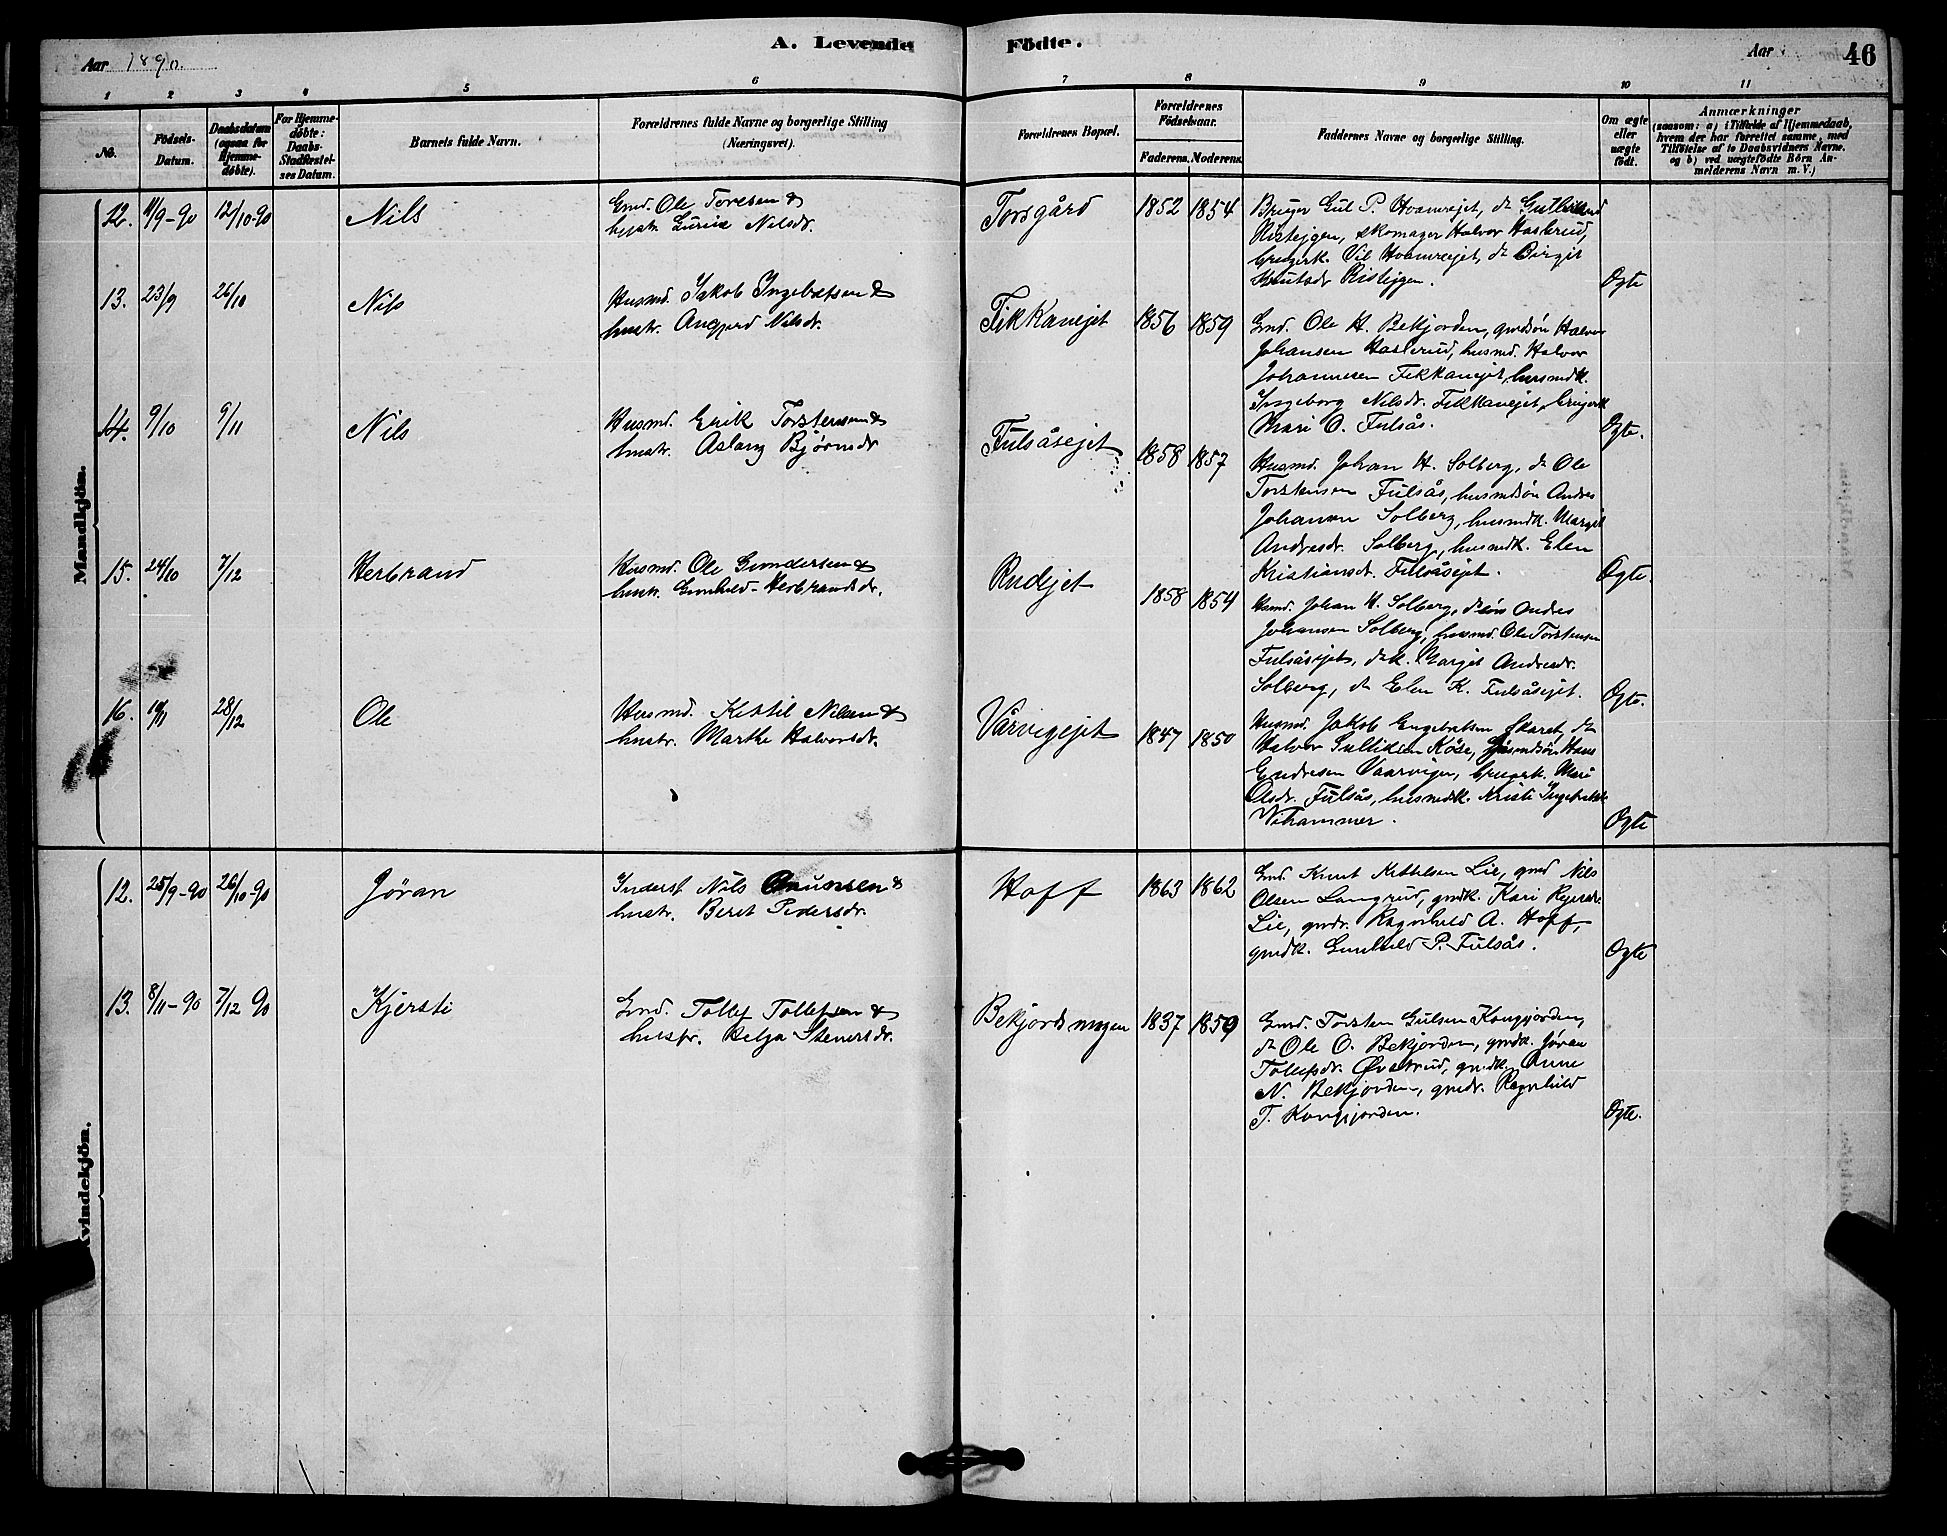 A. Levende Födte.
Aar 1890.
Aar
46
1 2 3 4 5 6 7 8 9 10 11
No.
Födsels-Datum.
Daabsdatum (ogsaa for Hjemme-döbte).
For Hjemme-döbte: Daabs-Stadfæstel-ses Datum.
Barnets fulde Navn.
Forældrenes fulde Navne og borgerlige Stilling (Næringsvei).
Forældrenes Bopæl.
Forældrenes Födselsaar.
Faderens. Moderens.
Faddernes Navne og borgerlige Stilling.
Om ægte eller uægte födt.
Anmærkninger
(saasom: a) i Tilfælde af Hjemmedaab, hvem der har forrettet samme, med Tilföielse af to Daabsvidners Navne, og b) ved uægtefödte Börn Anmelderens Navn m. V.)
Mandkjön.
12. 11/9-90 12/10-90 Nils
Gmd. Ole Toresen &
hustr. Nilsdr.
Torsgård 1852 1854
Bruger Gul P. Hoamsejet, do
skomager Halvor Haslerud,
Hoamsejet, do Birgit
Knutsdr Risteigen.
Ægte
13. 23/9 26/10 Nils
Husmd. Jakob Ingebretsen &
hustr. Angjerd Nilsdr.
Fekkanejet 1856 1859
Gmd. Ole H. Bekjorden, gmdsön Halvor
Johansen Haslerud, husmd. Halvor
Johannesen Fekkanejet, husmdk.
Ingeborg Nilsdr. Fekkanejet, brugerk
Mari O. Fulsås.
Ægte.
14. 9/10 9/11 Nils
Husmd. Erik Torstensen &
hustr. Aslaug Bjørnsdr
Fulsåsejet 1858 1857
Husmd. Johan H. Solberg, do Ole
Torstensen Fulsås, husmdsön Andres
Johansen Solberg, husmdk. Margit
Andresdr. Solberg, husmdk. Elen
Kristiansdr. Fulsåsejet.
Ægte.
15. 24/10 7/12 Herbrand
Husmd. Ole Gundersen &
hustr. Gunhild Herbrandsdr.
Rudejet 1858 1854
Husmd. Johan H. Solberg, do sön Andres
Johansen Solberg, husmd. Ole Torstensen
Fulsåsejet, do k. Margit Andresdr.
Solberg, do Elen K. Fulsåsejet.
Ægte.
16. 28/12 Ole
Husmd. Kittil Nilsen &
hustr. Marthe Halvorsdr.
Vårvigejet 1847 1850
Husmd. Jakob Engebretsen Skaret, do
Halvor Gulliksen Köse, husmdsön Hans
Endresen Vaarvigen, brugerk. Mari
Olsdr. Fulsås, husmdk. Kristi Ingebretsdr
Vihammer.
Ægte
Kvindekjön.
12. 25/9-90 26/10-90 Jöran
Inderst Nils Amunsen &
hustr. Beret Pedersdr.
Hoff 1863 1862
Gmd. Knut Kittilsen Lie, gmd Nils
Olsen Langrud, gmdk. Kari
Lie, gmdr. Ragnhild A. Hoff,
gmdk. Gunhild P. Fulsås.
Ægte
13. 8/11-90 7/12 90 Kjersti
Gmd. Tollef Tollefsen &
hustr. Helga Stenersdr.
Bekjordsmogen 1837 1859
Gmd. Torsten Gulsen Kongsjorden,
do Ole O. Bekjorden, gmdk. Jøran
Tollefsdr. Øvstrud, gmdk. Anne
N. Bekjorden, gmdr. Ragnhild
T. Kongsjorden.
Ægte.